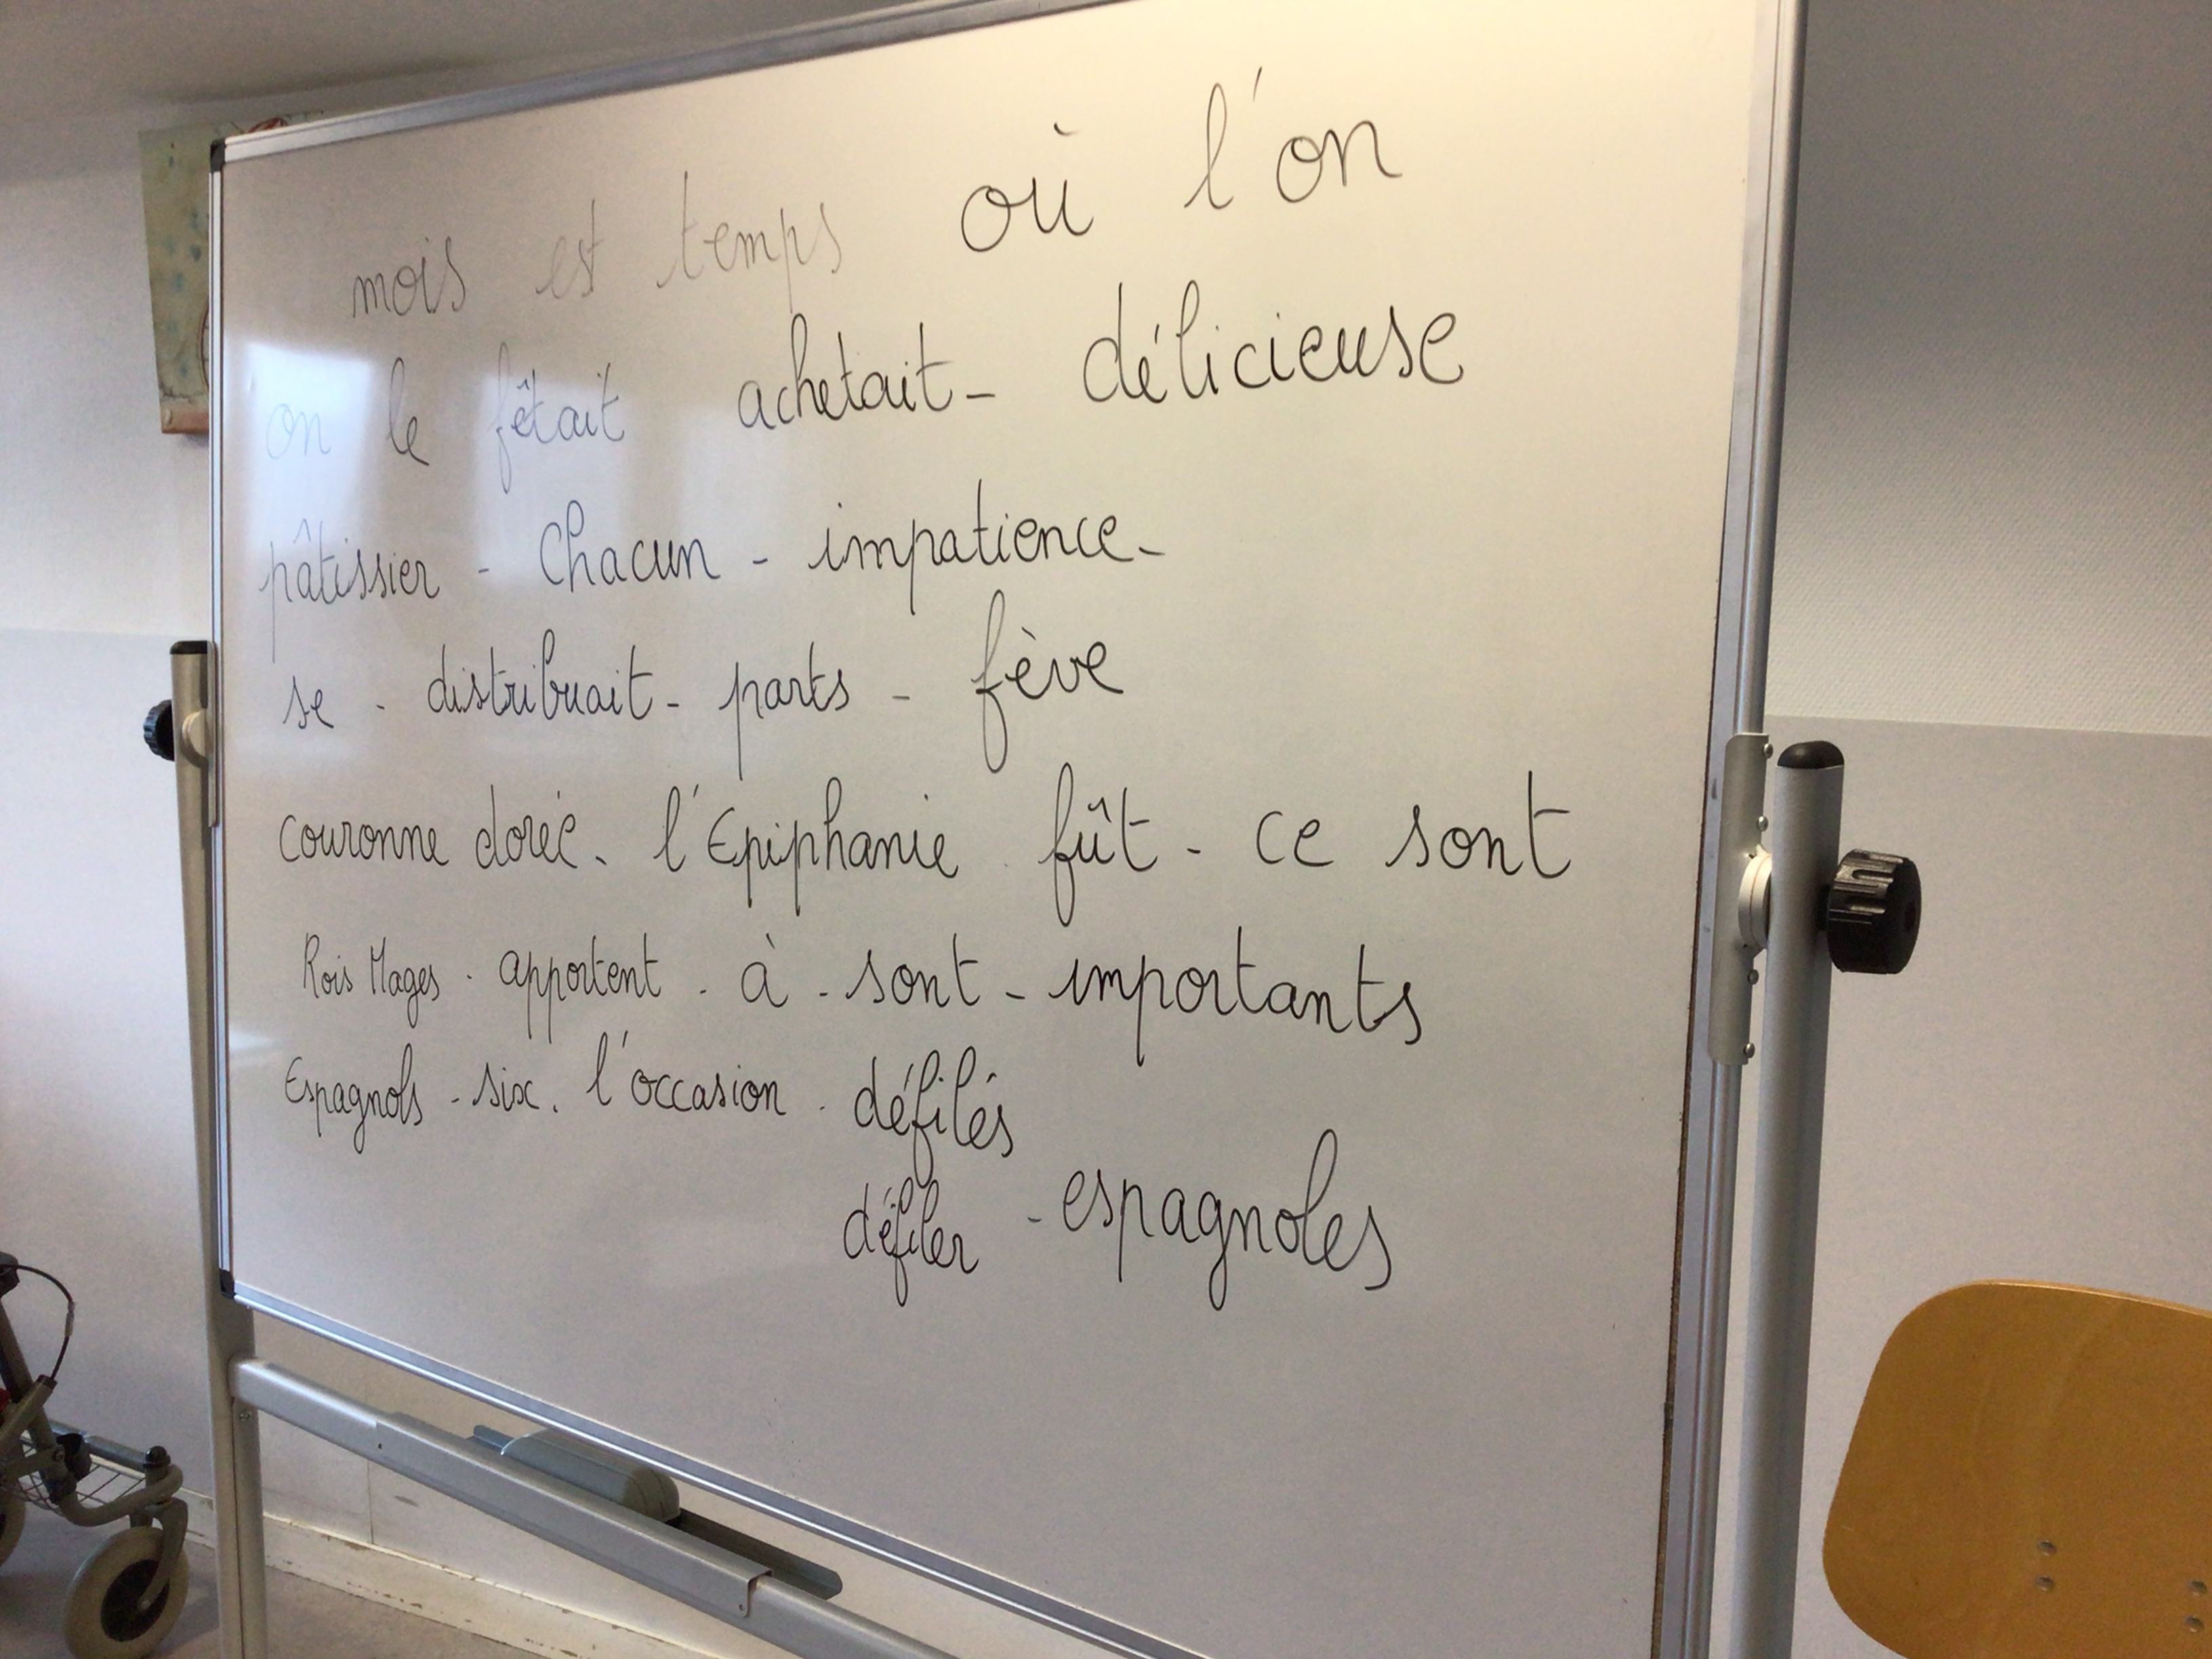 mois est temps où l'on
on le fêtait achetait - délicieuse
pâtissier - Chacun - impatience -
se - distribuait - parts - fève
couronne dorée - l'Epiphanie - fût - ce sont
Rois Mages - apportent - à - sont - importants
Espagnols - six - l'occasion - défilés
défiler - espagnoles